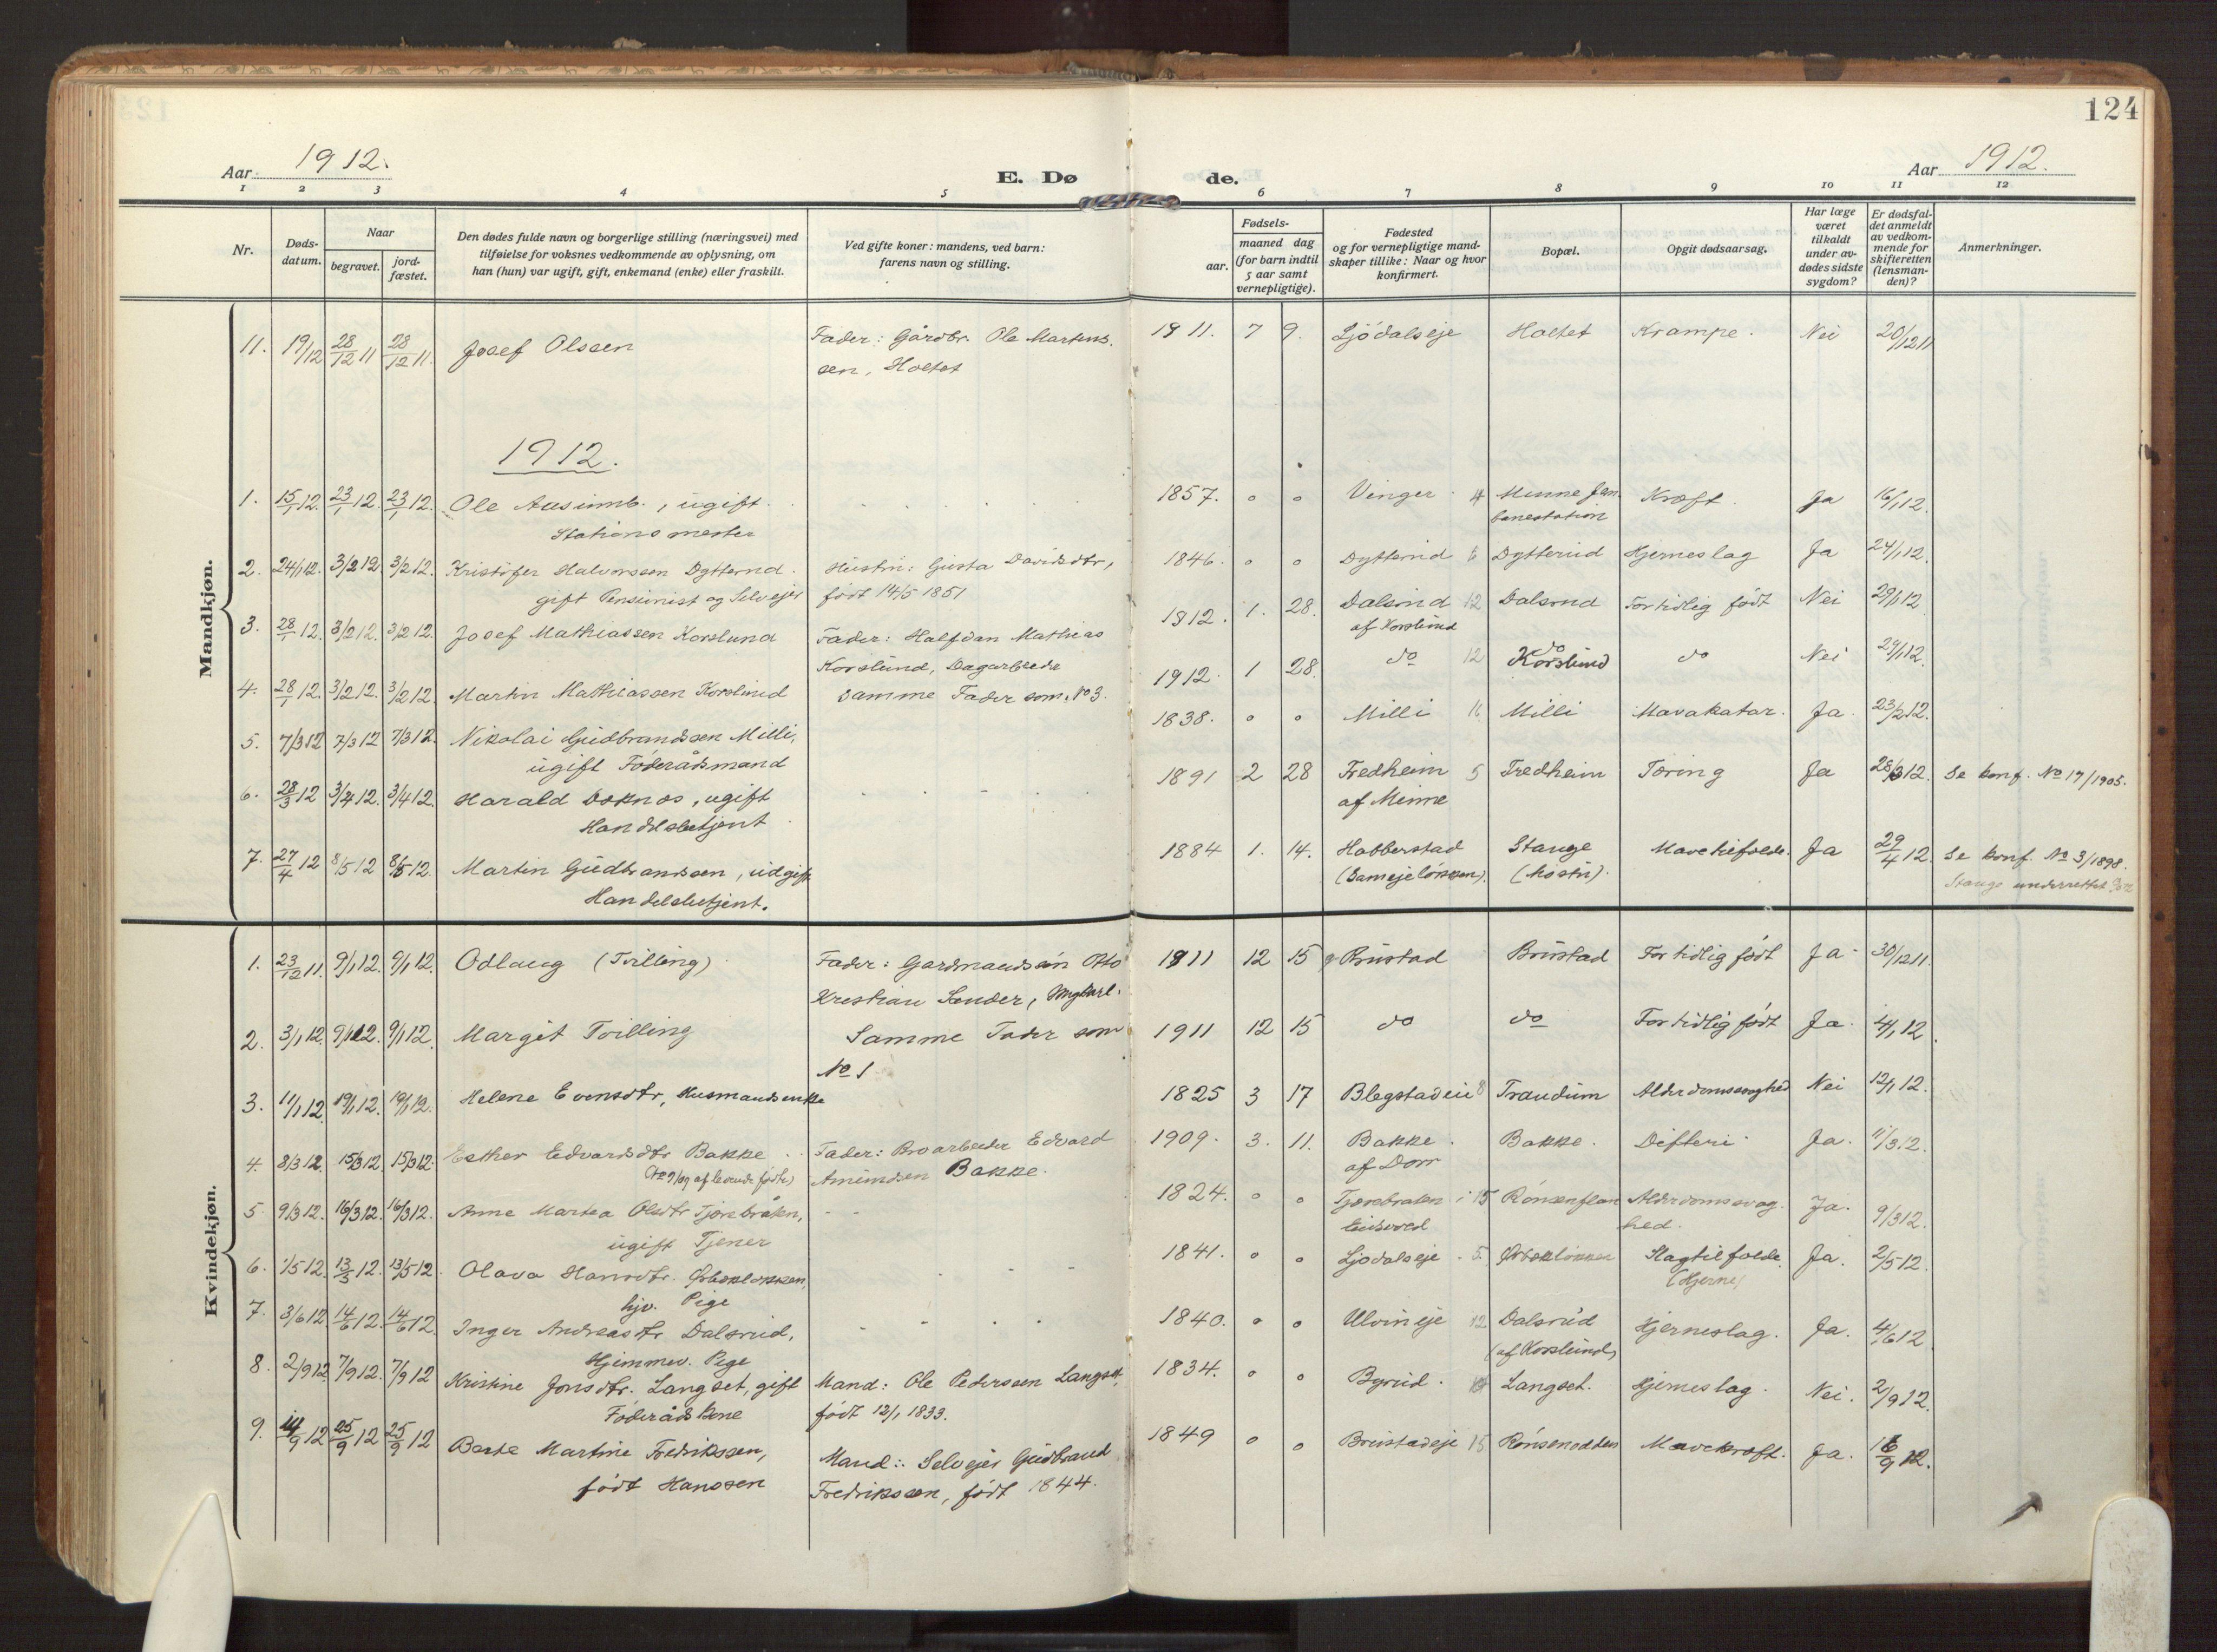 124
Aar 1912.
E. Dø
de.
Aar 1912.
1 2 3 4 5 6 7 8 9 10 11 12
Nr.
Døds-
datum.
Naar
begravet.
jord-
fæstet.
Den dødes fulde navn og borgerlige stilling (næringsvei) med
tilføielse for voksnes vedkommende av oplysning, om
han (hun) var ugift, gift, enkemand (enke) eller fraskilt.
Ved gifte koner: mandens, ved barn:
farens navn og stilling.
Fødsels-
aar.
maaned dag
(for barn indtil
5 aar samt
vernepligtige).
Fødested
og for vernepligtige mand-
skaper tillike: Naar og hvor
konfirmert.
Bopæl.
Opgit dødsaarsag.
Har læge
været
tilkaldt
under av-
dødes sidste
sygdom?
Er dødsfal-
det anmeldt
av vedkom-
mende for
skifteretten
(lensman-
den)?
Anmerkninger.
Mandkjøn.
11. 19/12 28/12 11 28/12 11. Josef Olssen Fader: Gårdbr. Ole Martins. 1911. 7 9. Ljødalseje Holtet Krampe. Nei 20/12 11
sen, Holtet
1912.
1. 15/1 12. 23/1 12. 23/1 12. Ole Ausumb., ugift. 1857. o o Vinger. 4 Minne Jern Kræft. Ja 16/1 12.
Stationsmester banestation
2. 24/1 12. 3/2 12. 3/2 12. Kristofer Halvorssen Dytterud. Hustru: Gusta Davidsdtr, 1846. o o Dytterud 6 Dytterud Hjerneslag Ja 24/1 12.
gift Pensionist og Selvejer født 14/5 1851
3. 28/1 12. 3/2 12. 3/2 12. Josef Mathiassen Korslund Fader: Halfdan Mathias 1912. 1. 28. Dalsrud 12 Dalsrud For tidlig født Nei 29/1 12
Korslund, Dagarbeide af Korslund
4. 28/1 12. 3/2 12. 3/2 12. Martin Mathiassen Korslund Samme Fader som No 3. 1912. 1 28. do 12 do Korslund do Nei 29/1 12.
5. 7/3 12 7/3 12 7/3 12. Nikolai Gudbrandssen Milli, 1838. o o Milli Milli Mavakatar. Ja. 23/2 12.
ugift Föderådsmand
6. 28/3 12 3/4 12. 3/4 12. Harald Doknæs, ugift 1891 2 28 Fredheim 5 Fredheim Tæring Ja 28/3 12. Se konf. No 17/1905.
Handelsbetjent af Minne
7. 27/4 12 8/5 12 8/5 12. Martin Gudbrandssen, udgift 1884 1. 14. Habberstad Stange Ja 29/4 12. Se konf. No 3/1898.
Handelsbetjent. Stange underrettet
Kvindekjøn.
1. 23/12 11. 9/1 12. 9/1 12. Odlaug (Tvilling) Fader: Gardmandssøn Otto 1911 12 15 Brustad Brustad For tidlig født Ja 30/12 11.
Kristian Sander,
2. 3/1 12. 9/1 12. 9/1 12. Margit Tvilling Samme Fader som 1911 12 15 do do For tidlig født Ja. 4/1 12.
No 1
3. 11/1 12 19/1 12. 19/1 12. Helene Evensdtr, Husmandsenke 1825 3 17 Blegstadeie 8 Traudum Alderdomssvaghed Nei 12/1 12.
4. 8/3 12. 15/3 12 15/3 12. Esther Edvardsdtr Bakke Fader: Broarbeider Edvard 1909. 3. 11. Bakke. Bakke. Difteri. Ja. 11/3 12.
(No 9/09 af levende fødte) Amundsen Bakke. af Dorr
5 9/3 12. 16/3 12. 16/3 12. Anne Martea Olsdtr Tjærebråten, 1824. o o Tjærebraten i 15 Rønsenflan Alderdomssvag. Ja. 9/3 12.
ugift Tjener Eidsvold hed.
6. 1/5 12. 13/5 12. 13/5 12. Olava Hansdtr. Ørbekløkken, 1841. o o Ljødalseje. 5. Ørbekløkken Slagtilfælde. Ja. 2/5 12.
hjv. Pige (Hjerne)
7. 3/6 12. 14/6 12. 14/6 12. Inger Andreasdtr Dalsrud, 1840. o o Ulvin eje 12 Dalsrud Hjerneslag. Ja. 4/6 12.
Hjemmev. Pige (af Korslund)
8. 2/9 12 7/9 12. 7/9 12 Kristine Jonsdtr. Langset, gift Mand: Ole Pederssen Langset 1834. o o Byrud. Langset. Hjerneslag. Nei. 2/9 12.
Föderådskone født 12/1 1833.
9. 14/9 12 25/9 12 25/9 12 Berte Martine Fredrikssen, Mand: Selvejer Gudbrand 1849 o o Brustadeje 15 Rønsenodden Mavekræft. Ja. 16/9 12.
født Hanssen Fredrikssen, født 1844.